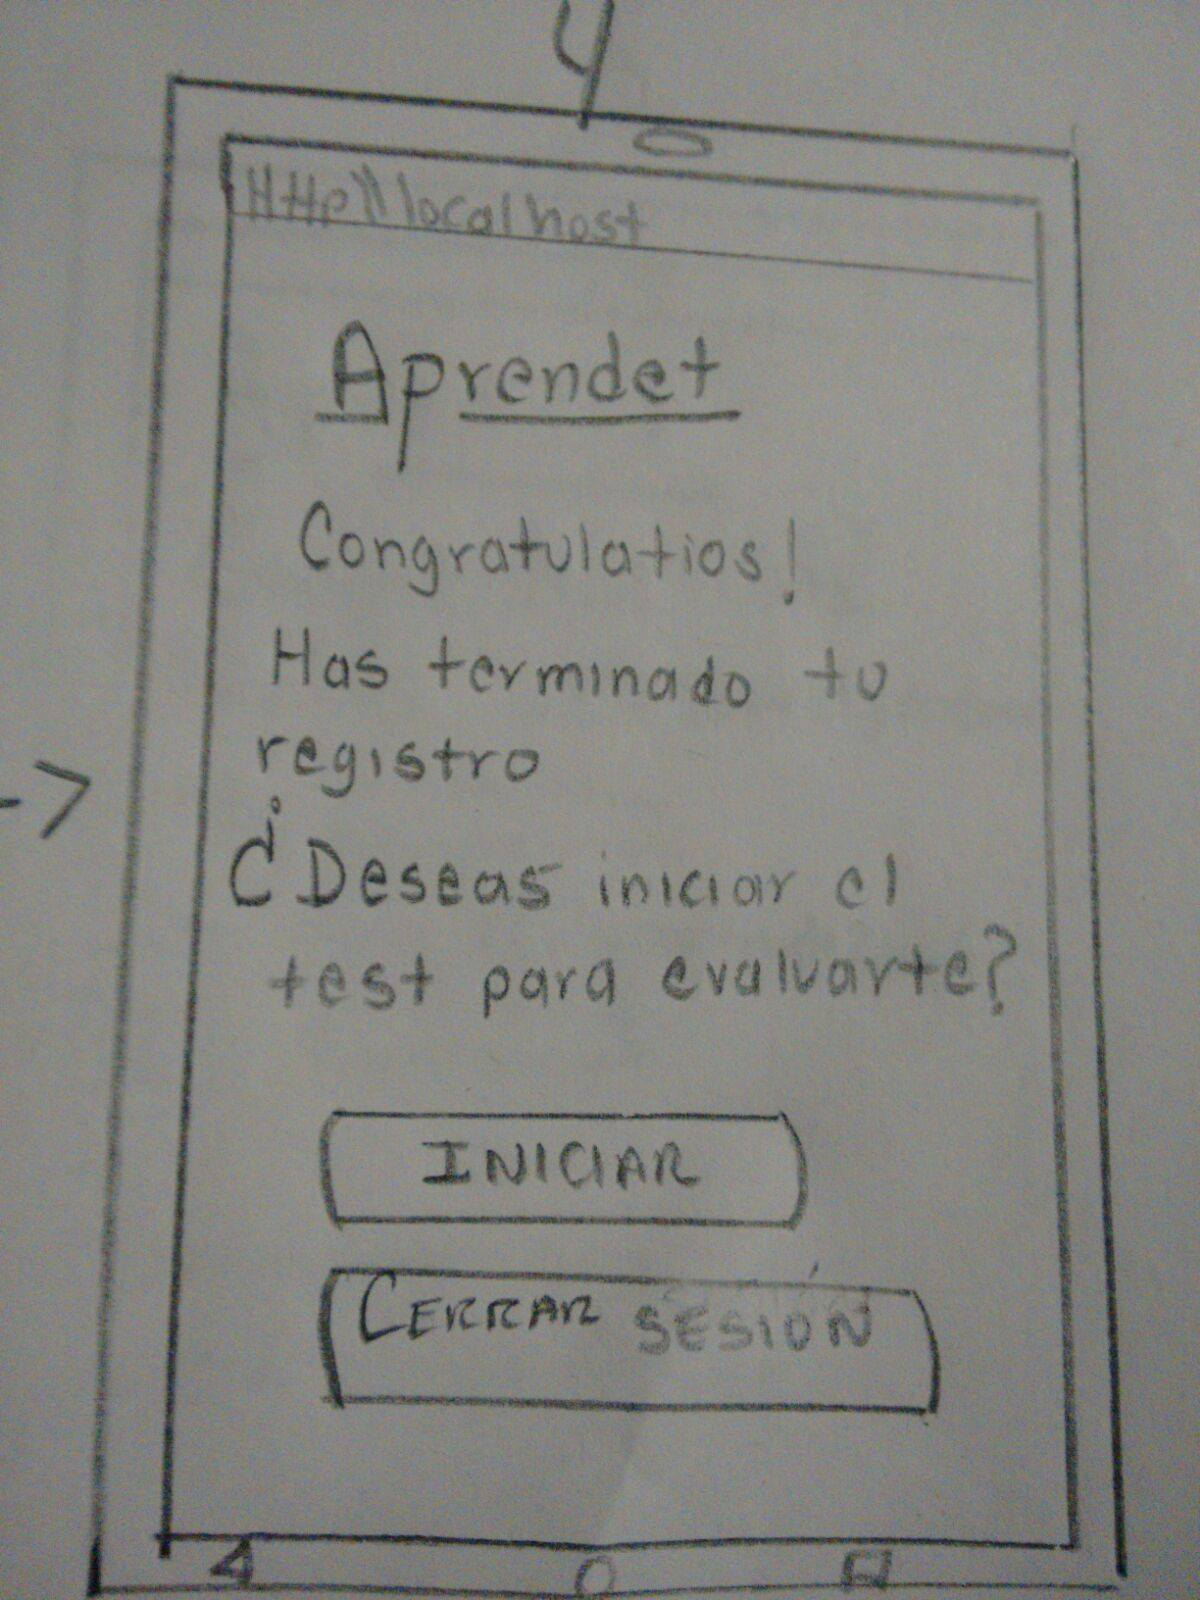 4
Http\\localhost
Aprendet
Congratulatios!
Has terminado tu
registro
¿Deseas iniciar el
test para evaluarte?
INICIAR
CERRAR SESIÓN